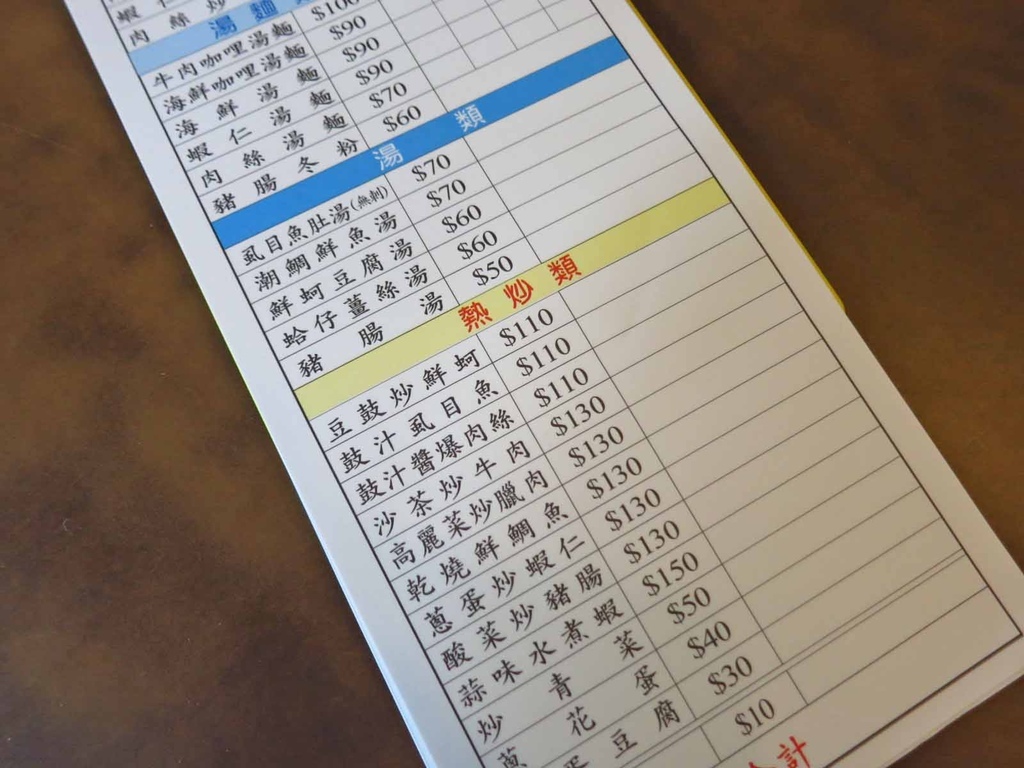 蝦仁
肉絲炒
湯麵
牛肉咖哩湯麵 $100
海鮮咖哩湯麵 $90
海鮮湯麵 $90
蝦仁湯麵 $90
肉絲湯麵 $70
豬腸冬粉 $60
湯類
虱目魚肚湯(無刺) $70
潮鯛鮮魚湯 $70
鮮蚵豆腐湯 $60
蛤仔薑絲湯 $60
豬腸湯 $50
熱炒類
豆鼓炒鮮蚵 $110
鼓汁虱目魚 $110
鼓汁醬爆肉絲 $110
沙茶炒牛肉 $130
高麗菜炒臘肉 $130
乾燒鮮鯛魚 $130
蔥蛋炒蝦仁 $130
酸菜炒豬腸 $130
蒜味水煮蝦 $150
炒青菜 $50
蔥花蛋 $40
豆腐 $30
$10
合計